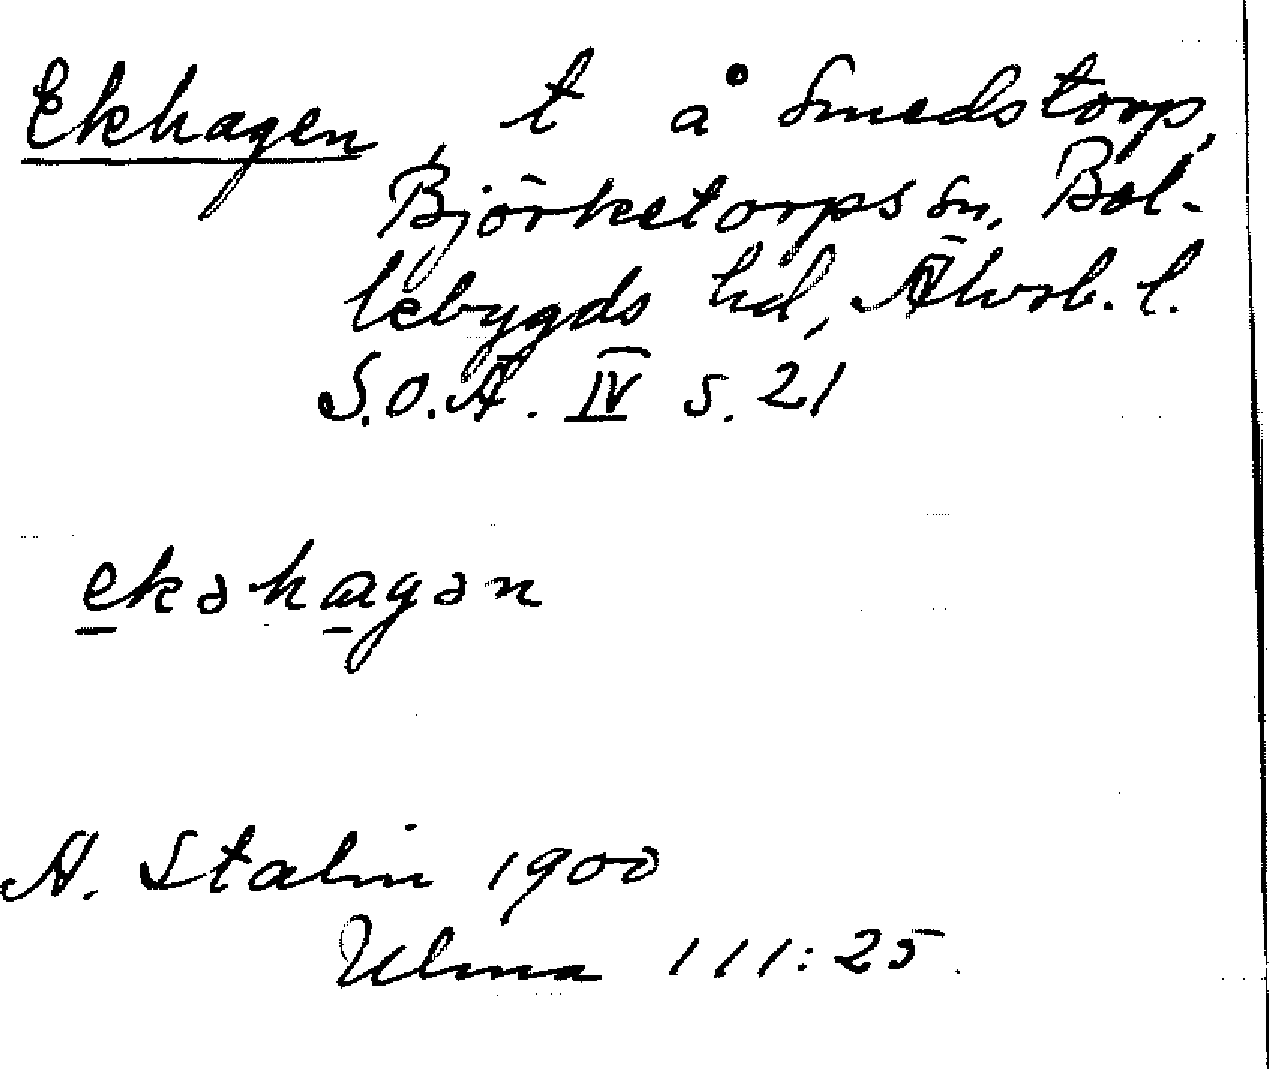 Ekhagen, t å Smedstorp,
Björketorps sn, Bol-
lebygds hd, Älvsb. l.
S.O.Ä. IV s. 21
ekəhagən
A. Stalin 1900
Ulma 111:25